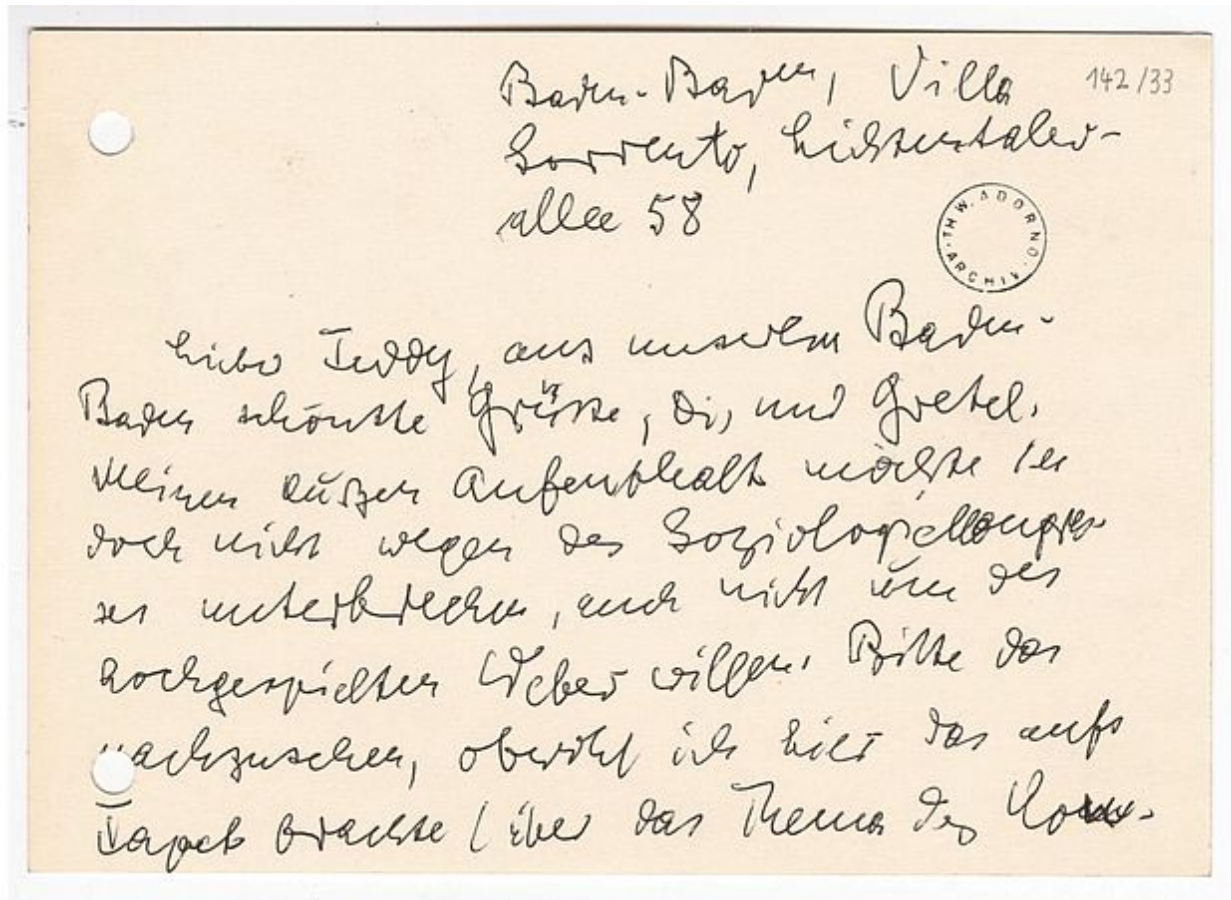 142/33
Baden-Baden, Villa
Sorrento, Lichtentaler-
allee 58
TH. W. ADORNO ARCHIV
Lieber Teddy, aus unserem Baden-
Baden schönste Grüsse, Dir und Gretel.
Meinen kurzen Aufenthalt möchte ich
doch nicht wegen des Soziologiekongres-
ses unterbrechen, auch nicht um des
hochgespielten Weber willen. Bitte das
nachzusehen, obwohl ich hier das aufs
Tapet brachte (über das Thema des